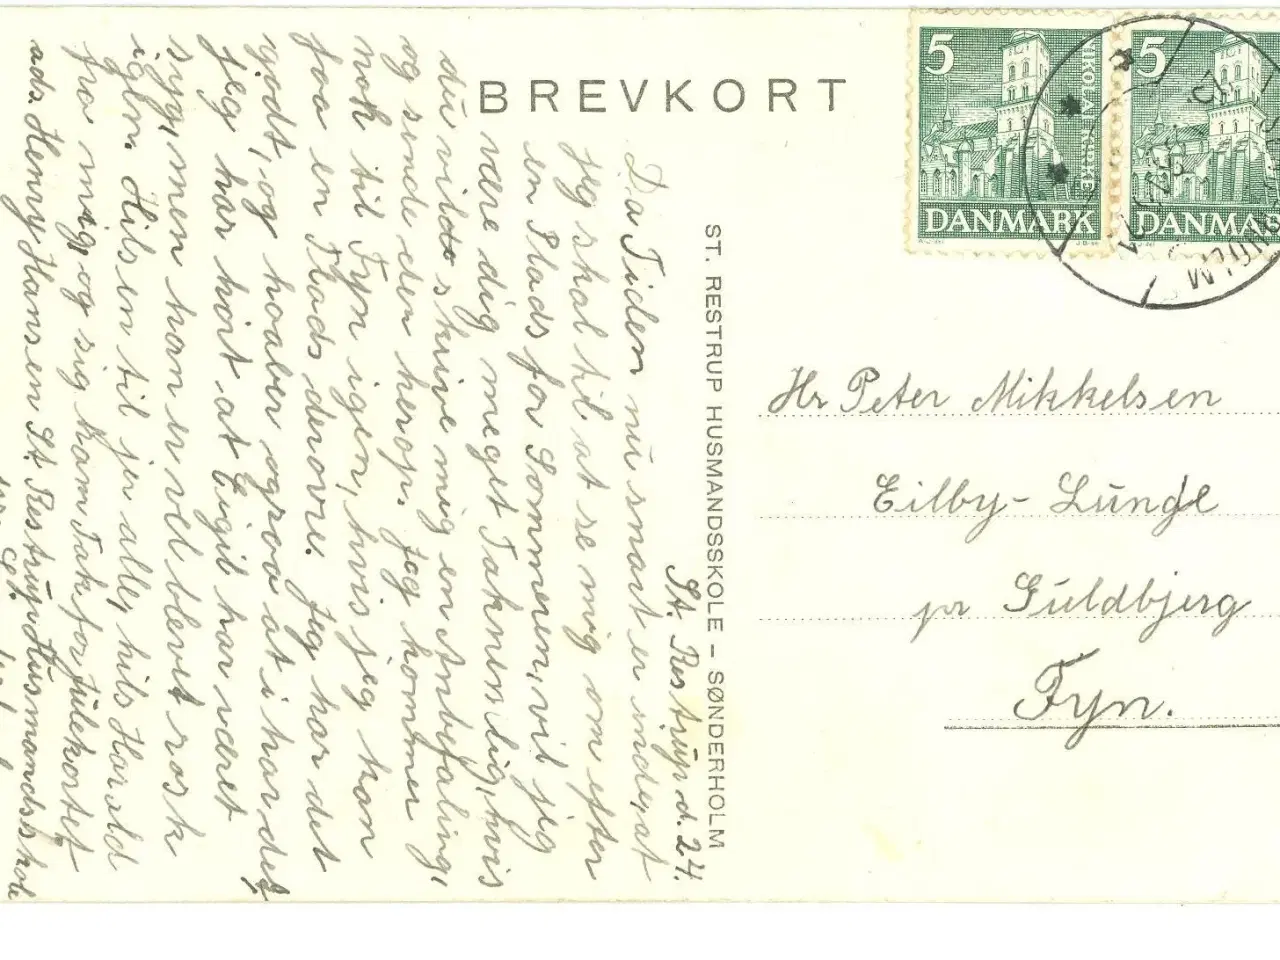 BREVKORT
5
NIKOLAI KIRKE
DANMARK
5
DANMA
ST. RESTRUP HUSMANDSSKOLE – SØNDERHOLM
St. Restrup d. 24.
Da Tiden nu snart er inde, at
jeg skal til at se mig om efter
en Plads for Sommeren, vil jeg
være dig meget Taknemlig, hvis
du vilde skrive mig en Anbefaling,
og sende den herop. Jeg kommer
nok til Fyn igen, hvis jeg kan
faa en Plads derovre. Jeg har det
godt, og haaber ogsaa at i har det
jeg har hørt at Eigil har været
syg, men han er vel blevet rask
igen. Hilsen til jer alle, hils Harald
fra mig og sig ham Tak for Julekortet
ads. Henry Hansen St. Restrup Husmandsskole
Hr Peter Mikkelsen
Eilby-Lunde
pr Guldbjerg
Fyn.